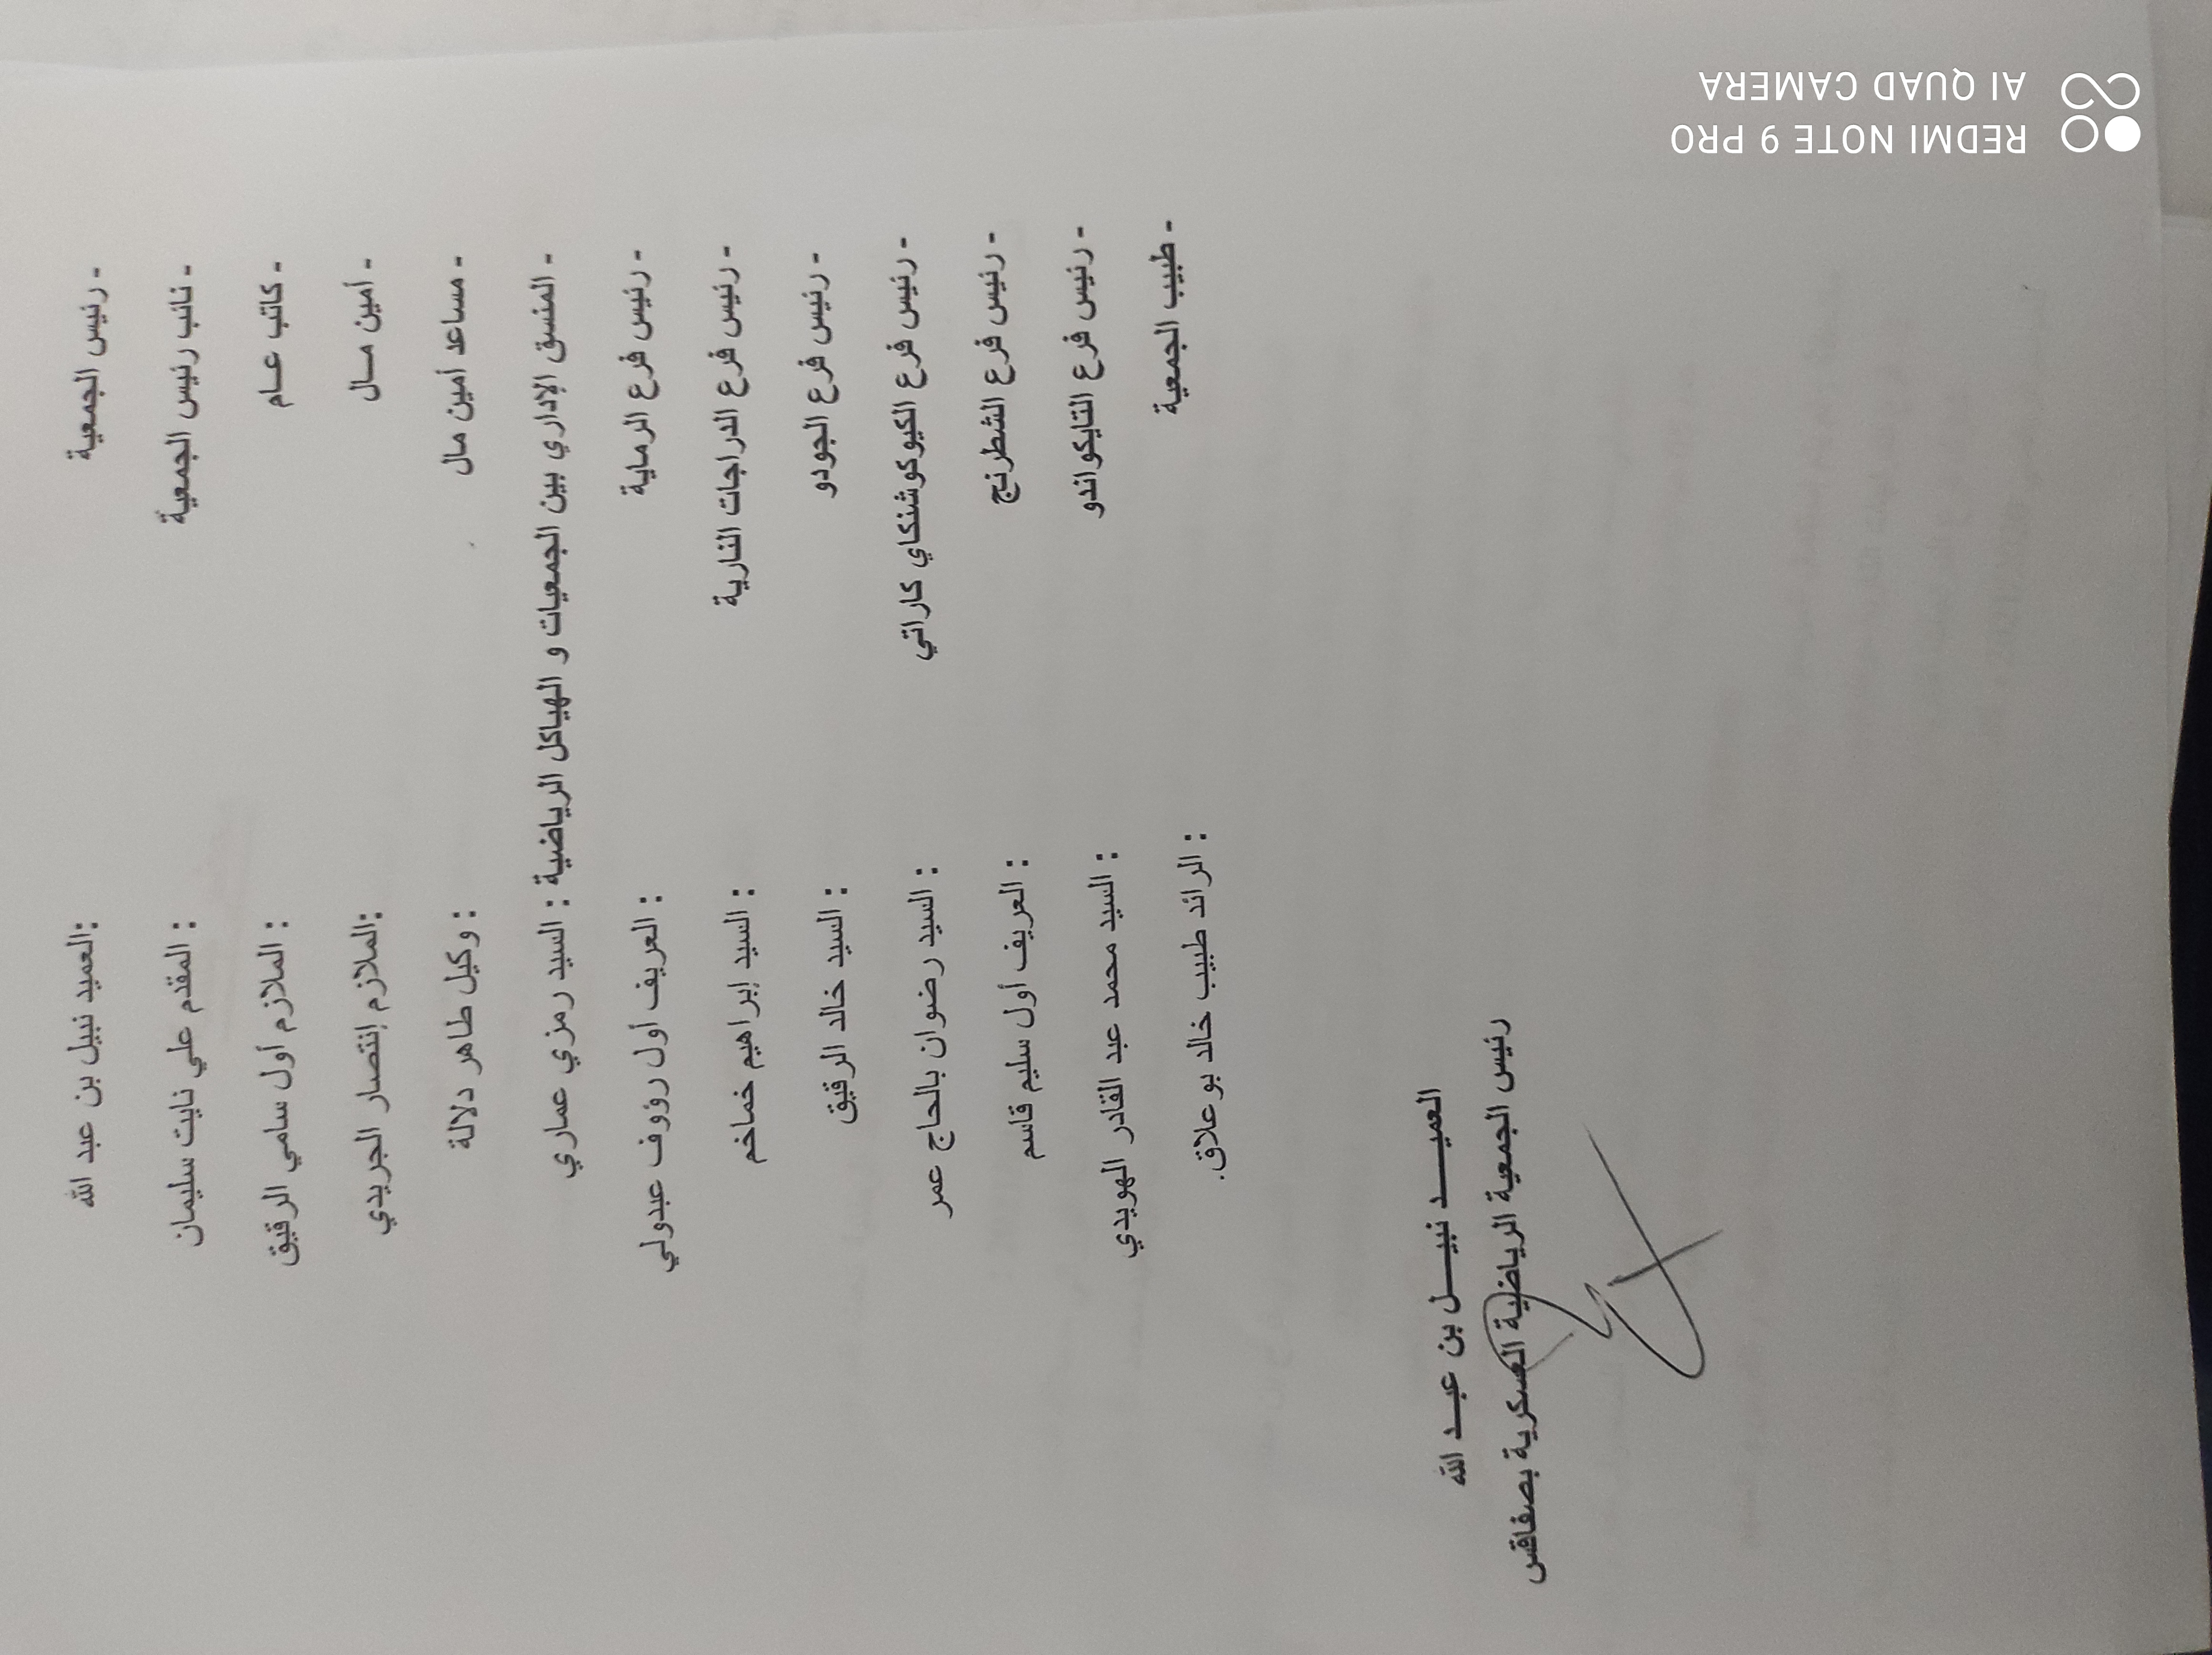 - رئيس الجمعية :العميد نبيل بن عبد الله
- نائب رئيس الجمعية : المقدم علي نايت سليمان
- كاتب عـام : الملازم أول سامي الرقيق
- أمين مـال :الملازم إنتصار الجريدي
- مساعد أمين مال : وكيل طاهر دلالة
- المنسق الإداري بين الجمعيات و الهياكل الرياضية : السيد رمزي عماري
- رئيس فرع الرماية : العريف أول رؤوف عبدولي
- رئيس فرع الدراجات النارية : السيد إبراهيم خماخم
- رئيس فرع الجودو : السيد خالد الرقيق
- رئيس فرع الكيوكوشنكاي كاراتي : السيد رضوان بالحاج عمر
- رئيس فرع الشطرنج : العريف أول سليم قاسم
- رئيس فرع التايكواندو : السيد محمد عبد القادر الهويدي
- طبيب الجمعية : الرائد طبيب خالد بوعلاق.
العميـــد نبيـــل بن عبـــد الله
رئيس الجمعية الرياضية العسكرية بصفاقس
REDMI NOTE 9 PRO
AI QUAD CAMERA